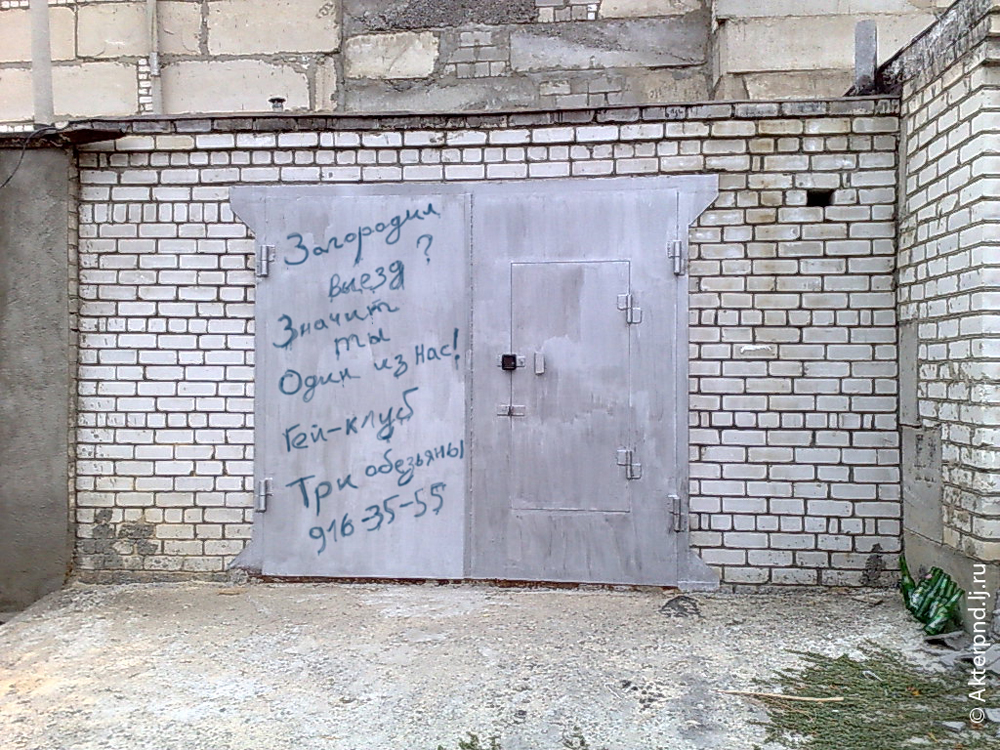 Загородил
выезд ?
Значит
ты
Один из нас!
Гей-клуб
Три обезьяны
916-35-55
© Akterpnd.lj.ru